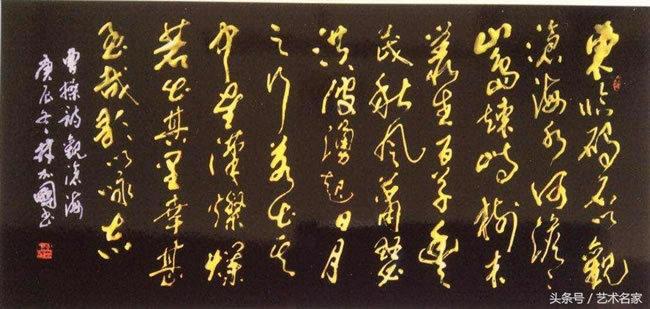 東臨碣石以觀
滄海水何澹〻
山島竦峙樹木
叢生百草豐
茂秋風蕭瑟
洪波湧起日月
之行若出其
中星漢燦爛
若出其里幸甚
至哉歌以咏志
曹操詩觀滄海
庚辰冬林國書
头条号/艺术名家